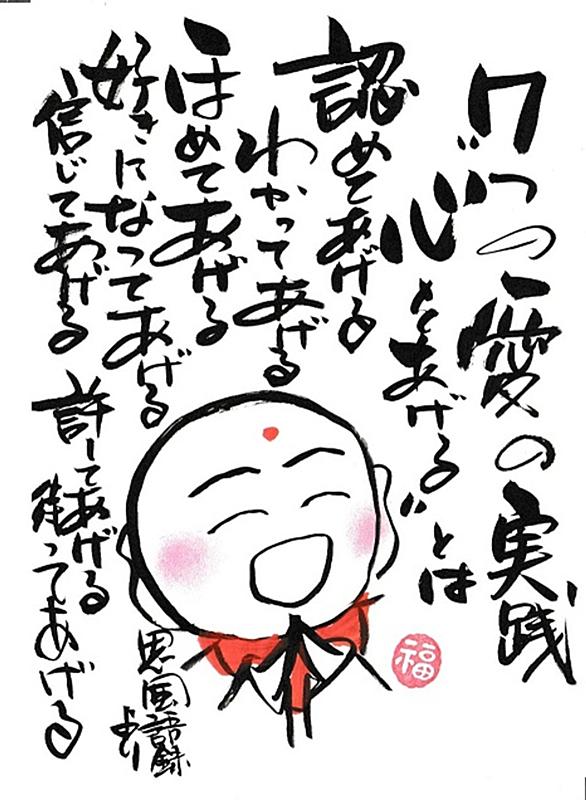 7つの愛の実践
“心をあげる”とは
認めてあげる
わかってあげる
ほめてあげる
好きになってあげる
信じてあげる
許してあげる
待ってあげる
思風語録
より
福